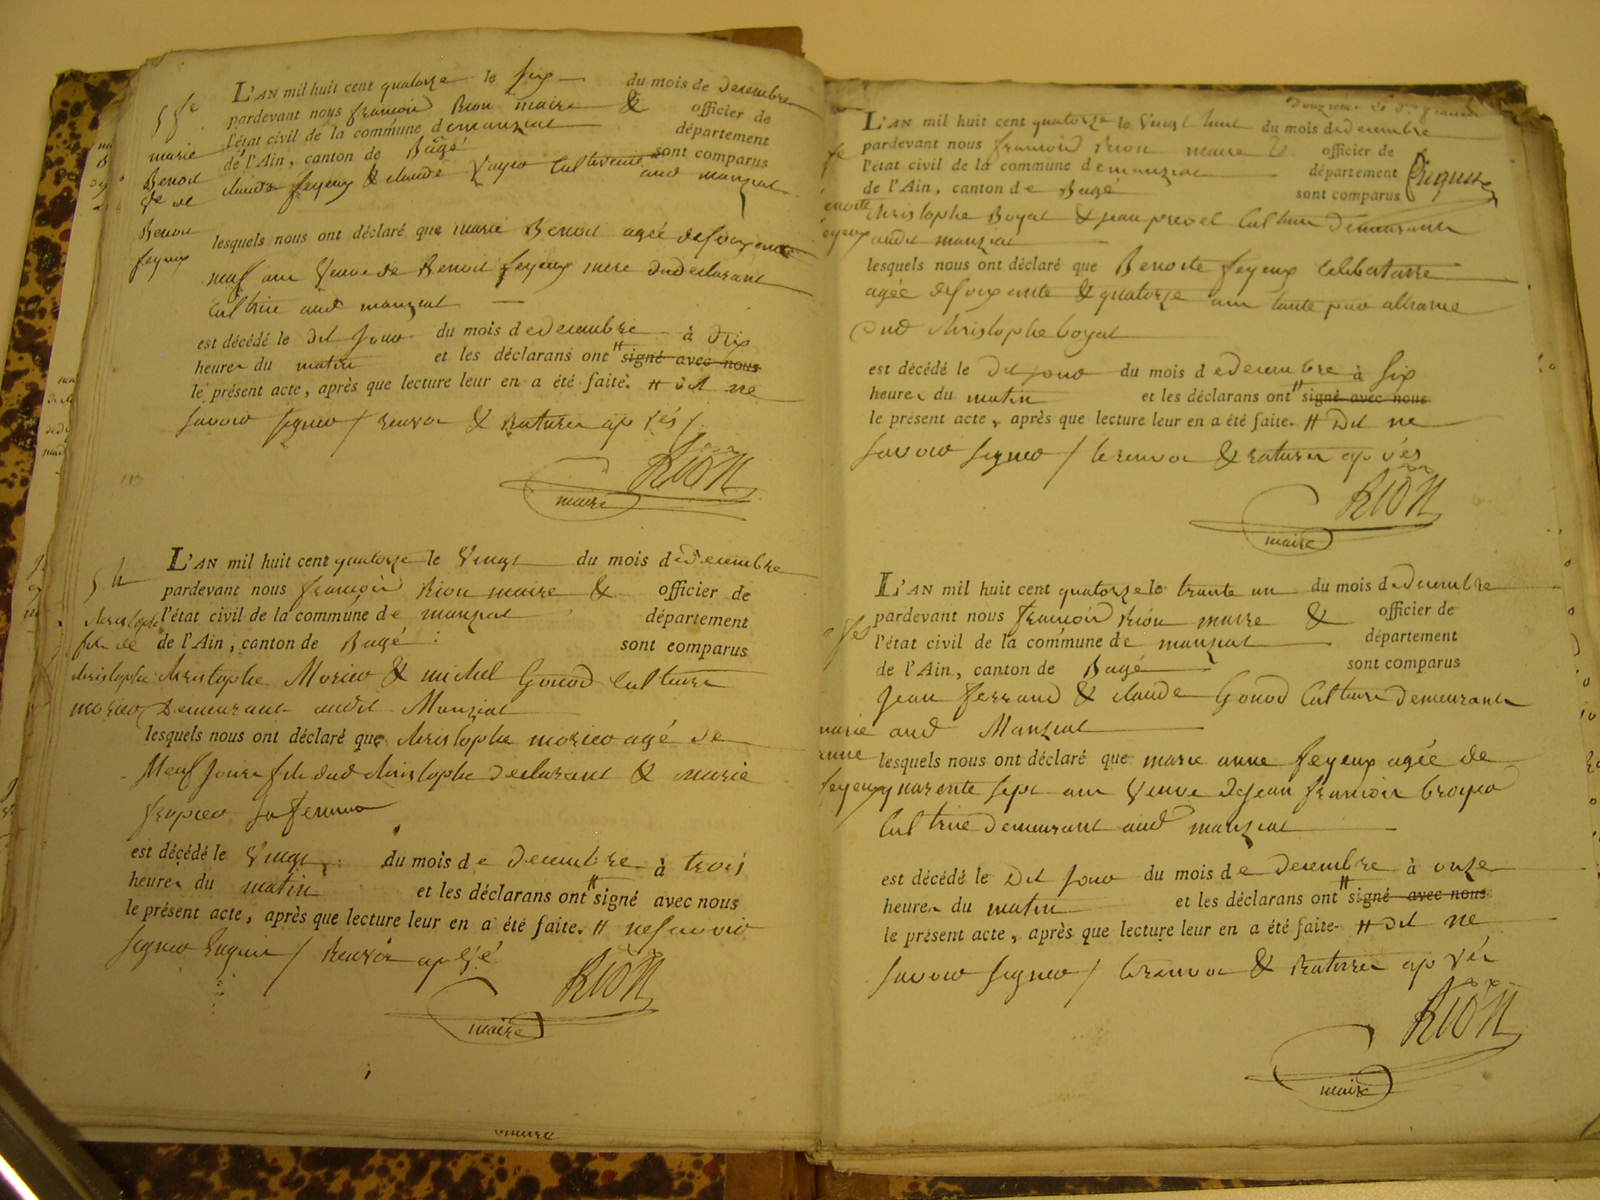 L'AN mil huit cent quatorze le six du mois de decembre
pardevant nous françois Rion maire & officier de
l'état civil de la commune de manziat département
de l'Ain, canton de Bâgé sont comparus
claude feyeux & claude cultivateurs aud manziat
lesquels nous ont déclaré que marie Benoit agée de soixente
neuf ans veuve de Benoit feyeux mere du declarant
cultrice aud manziat
est décédé le dit jour du mois de decembre à dix
heures du matin et les déclarans ont # signé avec nous
le présent acte, après que lecture leur en a été faite. # dit ne
savoir signer / renvoi & ratures
RION
maire
marie
Benoit
ve de
Benoit
feyeux
L'AN mil huit cent quatorze le vingt du mois de decembre
pardevant nous françois Rion maire & officier de
l'état civil de la commune de manziat département
de l'Ain, canton de Bagé : sont comparus
christophe & michel Gonod culteurs
Demeurant audit Manziat
lesquels nous ont déclaré que christophe agé de
Neuf jours fils dud christophe declarant & Marie
sa femme
est décédé le vingt du mois de decembre à trois
heures du matin et les déclarans ont # signé avec nous
le présent acte, après que lecture leur en a été faite. # ne savoir
signer / Renvoi
RION
maire
christophe
fils de
christophe
L'AN mil huit cent quatorze le vingt huit du mois de decembre
pardevant nous françois Rion maire & officier de
l'état civil de la commune de manziat département
de l'Ain, canton de Bagé sont comparus
christophe Boyat & jean culteurs demeurants
audit manziat
lesquels nous ont déclaré que Benoite feyeux celibataire
agée de soixente & quatorze ans tante
dud christophe boyat
est décédé le dit jour du mois de decembre à six
heures du matin et les déclarans ont # signé avec nous
le présent acte, après que lecture leur en a été faite. # Dit ne
savoir signer / le renvoi & ratures
RION
maire
L'AN mil huit cent quatorze le trante un du mois de decembre
pardevant nous françois Rion maire & officier de
l'état civil de la commune de manziat département
de l'Ain, canton de Bagé sont comparus
jean ferrand & claude Gonod culteurs demeurants
aud Manziat
lesquels nous ont déclaré que marie anne feyeux agée de
quarente sept ans veuve de jean françois
cultrice demeurant aud manziat
est décédé le dit jour du mois de decembre à onze
heures du matin et les déclarans ont # signé avec nous
le présent acte, après que lecture leur en a été faite. # Dit ne
savoir signer / le renvoi & ratures
RION
maire
marie
anne
feyeux